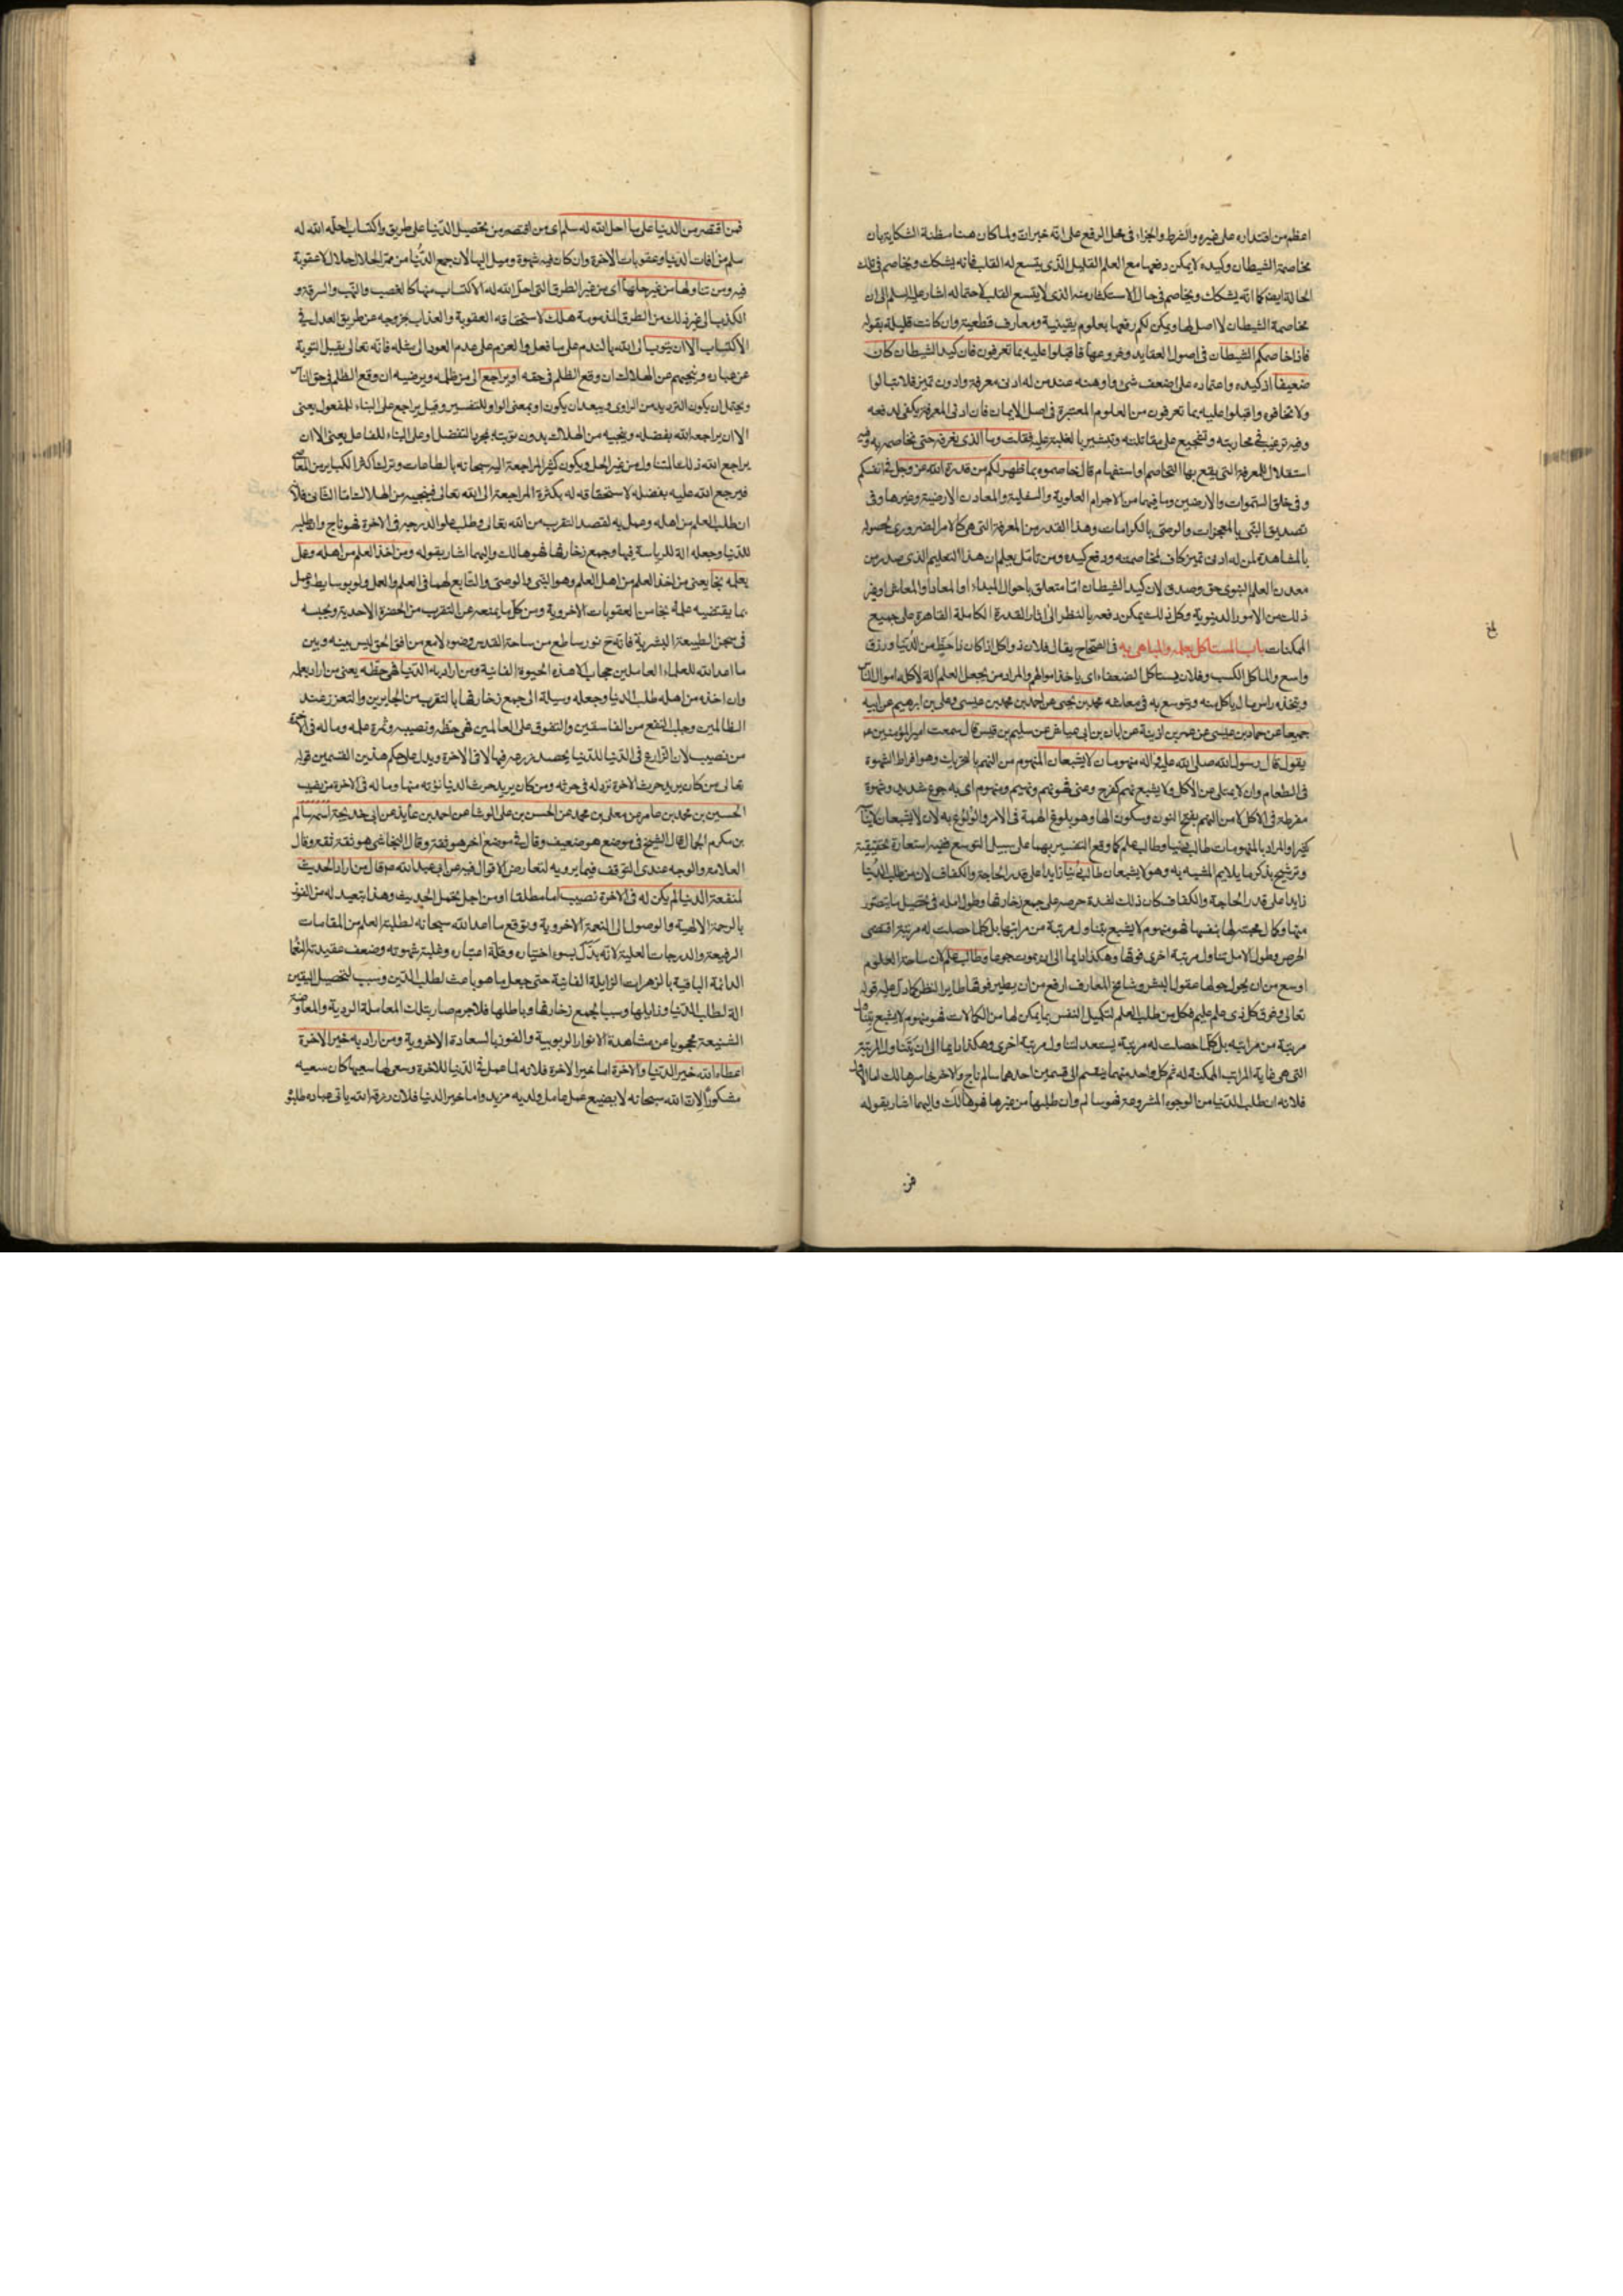 اعظم من اقتداره على غيره والشرط والجزاء فى محل الرفع على انّه خبر انّ ولما كان هنا مظنة الشكاية بان
مخاصمة الشيطان وكيده لا يمكن دفعها مع العلم القليل الّذى يتسع له القلب فانه يشكك ويخاصم فى تلك
الحالة ايضا كما انّه يشكك ويخاصم فى حال الاستكثار منه الذى لا يتسع القلب لاحتماله اشار عليه السلم الى ان
مخاصمة الشيطان لا اصل لها ويمكن لكم رفعها بعلوم يقينية ومعارف قطعية وان كانت قليلة بقوله
فاذا خاصمكم الشيطان فى اصول العقايد وفروعها فاقبلوا عليه بما تعرفون فان كيد الشيطان كان
ضعيفا اذ كيده واعتماده على اضعف شئ واوهنه عند من له ادنى معرفة وادون تميز فلا تبالوا
ولا تخافوه واقبلوا عليه بما تعرفون من العلوم المعتبرة فى اصل الايمان فان ادنى المعرفة يكفى لدفعه
وفيه ترغيب فى محاربته وتشجيع على مقاتلته وتبشير بالغلبة عليه فقلت وما الذى نعرفه حتى نخاصمه به وفيه
استقلال للمعرفة التى يقع بها التخاصم او استفهام قال خاصموه بما ظهر لكم من قدرة الله عز وجل فى انفسكم
وفى خلق السّموات والارضين وما فيهما من الاجرام العلوية والسفلية والمعادن الارضية وغيرها وفى
تصديق النّبى بالمعجزات والوصى بالكرامات وهذا القدر من المعرفة التى هى كالامر الضرورى لحصوله
بالمشاهدة لمن له ادنى تميز كاف لمخاصمته ودفع كيده ومن تامّل يعلم ان هذا التعليم الذى صدر من
معدن العلم النبوى حق وصدق لان كيد الشيطان امّا متعلق باحوال المبداء او المعاد او المعاش او غير
ذلك من الامور الدنيوية وكل ذلك يمكن دفعه بالنظر الى اثار القدرة الكاملة القاهرة على جميع
الممكنات باب المستاكل بعلمه والمباهى به فى الصّحاح يقال فلان ذو اكل اذا كان ذا حظّ من الدّنيا ورزق
واسع والماكل الكسب وفلان يستاكل الضعفاء اى ياخذ اموالهم والمراد من يجعل العلم آلة لاكل اموال الناس
ويتخذه راس مال ياكل منه ويتوسع به فى معاشه محمد بن يحيى عن احمد بن محمد بن عيسى وعلى بن ابرهيم عن ابيه
جميعا عن حماد بن عيسى عن عمر بن اذينة عن ابان بن ابى عياش عن سليم بن قيس قال سمعت امير المؤمنين ع
يقول قال رسول الله صلى الله عليه واله منهومان لا يشبعان المنهوم من النهم بالتحريك وهو افراط الشهوة
فى الطعام وان لا يمتلى عن الاكل ولا يشبع نهم كفرح وعنى فهو نهم ونهيم ومنهوم اى به جوع شديد وشهوة
مفرطة فى الاكل لا من النهم بفتح النون وسكون الهاء وهو بلوغ الهمة فى الامر والولوغ به لان لا يشبعان
كثيرا والمراد بالمنهومات طالب دنيا وطالب علم كما وقع التفسير بهما على سبيل التوسع ففيه استعارة تحقيقية
وترشيح بذكر ما يلايم المشبه به وهو لا يشبعان طالب دنيا زايدا على قدر الحاجة والكفاف لان من طلب الدّنيا
زايدا على قدر الحاجة والكفاف كان ذلك لشدة حرصه على جمع زخارفها وطول امله فى تحصيل ما يتصور
منها وكمال محبته لها بنفسها فهو منهوم لا يشبع بتناول مرتبة من مراتبها بل كلّما حصلت له مرتبة اقتضى
الحرص وطول الامل تناول مرتبة اخرى فوقها وهكذا دايما الى ان يموت جوعا وطالب علم لان ساحة العلوم
اوسع من ان يحول حولها عقول البشر وشامخ المعارف ارفع من ان يطير فوقها طاير النظر كما دل عليه قوله
تعالى وفوق كل ذى علم عليم فكل من طلب العلم لتكميل النفس بما يمكن لها من الكمالات فهو منهوم لا يشبع بتناول
مرتبة من مراتبه بل كلّما حصلت له مرتبة يستعد لتناول مرتبة اخرى وهكذا دايما الى ان يتناول المرتبة
التى هى غاية المراتب الممكنة له ثم كل واحد منهما ينقسم الى قسمين احدهما سالم ناج والاخر خاسر هالك اما الاول
فلانه ان طلب الدّنيا من الوجوه المشروعة فهو سالم وان طلبها من غيرها فهو هالك واليهما اشار بقوله
فمن
فمن اقتصر من الدنيا على ما احل الله له سلم اى من اقتصر من تحصيل الدّنيا على طريق واكتساب احلّه الله له
سلم من افات الدنيا وعقوبات الاخرة وان كان فيه شهوة وميل اليها لان جمع الدّنيا من ممرّ الحلال حلال لا عقوبة
فيه ومن تناولها من غير حلها اى من غير الطرق التى احل الله له الاكتساب منها كالغصب والنهب والسرقة و
الكذب الى غير ذلك من الطرق المذمومة هلك لاستحقاقه العقوبة والعذاب بخروجه عن طريق العدل فى
الاكتساب الا ان يتوب الى الله بالندم على ما فعل والعزم على عدم العود الى مثله فانّه تعالى يقبل التوبة
عن عباده وينجيهم عن الهلاك ان وقع الظلم فى حقه او يراجع الى من ظلمه ويرضيه ان وقع الظلم فى حق الناس
ويحتمل ان يكون الترديد من الراوى ويبعد ان يكون او بمعنى الواو للتفسير وقيل يراجع على البناء للمفعول يعنى
الا ان يراجعه الله بفضله وينجيه من الهلاك بدون توبته بمجرد التفضل او على البناء للفاعل يعنى الا ان
يراجع الله ذلك المتناول من غير الحل ويكون كثير المراجعة اليه سبحانه بالطاعات وترك اكثر الكباير من المعاصى
فيرجع الله عليه بفضله لاستحقاقه له بكثرة المراجعة الى الله تعالى فينجيه من الهلاك امّا الثانى فلانه
ان طلب العلم من اهله وعمل به لقصد التقرب من الله تعالى وطلب علو الدرجة فى الاخرة فهو ناج وان طلبه
للدنيا وجعله الة للرياسة فيها وجمع زخارفها فهو هالك واليهما اشار بقوله ومن اخذ العلم من اهله وعمل
بعلمه نجا يعنى من اخذ العلم من اهل العلم وهو النّبى والوصى والتابع لهما فى العلم والعمل ولو بوسايط وعمل
بما يقتضيه علمه نجا من العقوبات الاخروية ومن كل ما يمنعه عن التقرب من الحضرة الاحدية ويحبسه
فى سجن الطبيعة البشرية فانه ح نور ساطع من ساحة القدس وضوء لامع من افق الحق ليس بينه وبين
ما اعد الله للعلماء العاملين حجاب الا هذه الحيوة الفانية ومن اراد به الدّنيا فهى حظّه يعنى من اراد بعلمه
وان اخذه من اهله طلب الدنيا وجعله وسيلة الى جمع زخارفها بالتقرب من الجابرين والتعزز عند
الظالمين وجلب النفع من الفاسقين والتفوق على العالمين فهى حظّه ونصيبه وثمرة علمه وما له فى الاخرة
من نصيب لان الزارع فى الدّنيا للدنيا يحصد زرعه فيها لا فى الاخرة ويدل على حكم هذين القسمين قوله
تعالى من كان يريد حرث الاخرة نزد له فى حرثه ومن كان يريد حرث الدنيا نؤته منها وما له فى الاخرة من نصيب
الحسين بن محمد بن عامر عن معلى بن محمد عن الحسن بن على الوشا عن احمد بن عايذ عن ابى خديجة اسمه سالم
بن مكرم الجمال قال الشيخ فى موضع هو ضعيف وقال فى موضع اخر هو ثقة وقال النجاشى هو ثقة ثقة وقال
العلامة والوجه عندى التوقف فيما يرويه لتعارض الاقوال فيه عن ابى عبد الله ع قال من اراد الحديث
لمنفعة الدنيا لم يكن له فى الاخرة نصيب اما مطلقا او من اجل تحمل الحديث وهذا تبعيد له من الفوز
بالرحمة الالهية والوصول الى النعمة الاخروية وتوقع ما اعد الله سبحانه لطلبة العلم من المقامات
الرفيعة والدرجات العلية لانّه بدّل بسوء اختياره وقلة اعتباره وغلبة شهوته وضعف عقيدته النعماء
الدائمة الباقية بالزهرات الزايلة الفانية حتى جعل ما هو باعث لطلب الدّين وسبب لتحصيل اليقين
الة لطلب الدّنيا وذايلها وسببا لجمع زخارفها وباطلها فلا جرم صار بتلك المعاملة الردية والمعاوضة
الشنيعة محجوبا عن مشاهدة الانوار الربوبية والفوز بالسعادة الاخروية ومن اراد به خير الاخرة
اعطاه الله خير الدّنيا والاخرة اما خير الاخرة فلانه لما عمل فى الدّنيا للاخرة وسعى لها سعيها كان سعيه
مشكورا لان الله سبحانه لا يضيع عمل عامل ولديه مزيد واما خير الدنيا فلان رزق الله ياتى عباده طلبوه